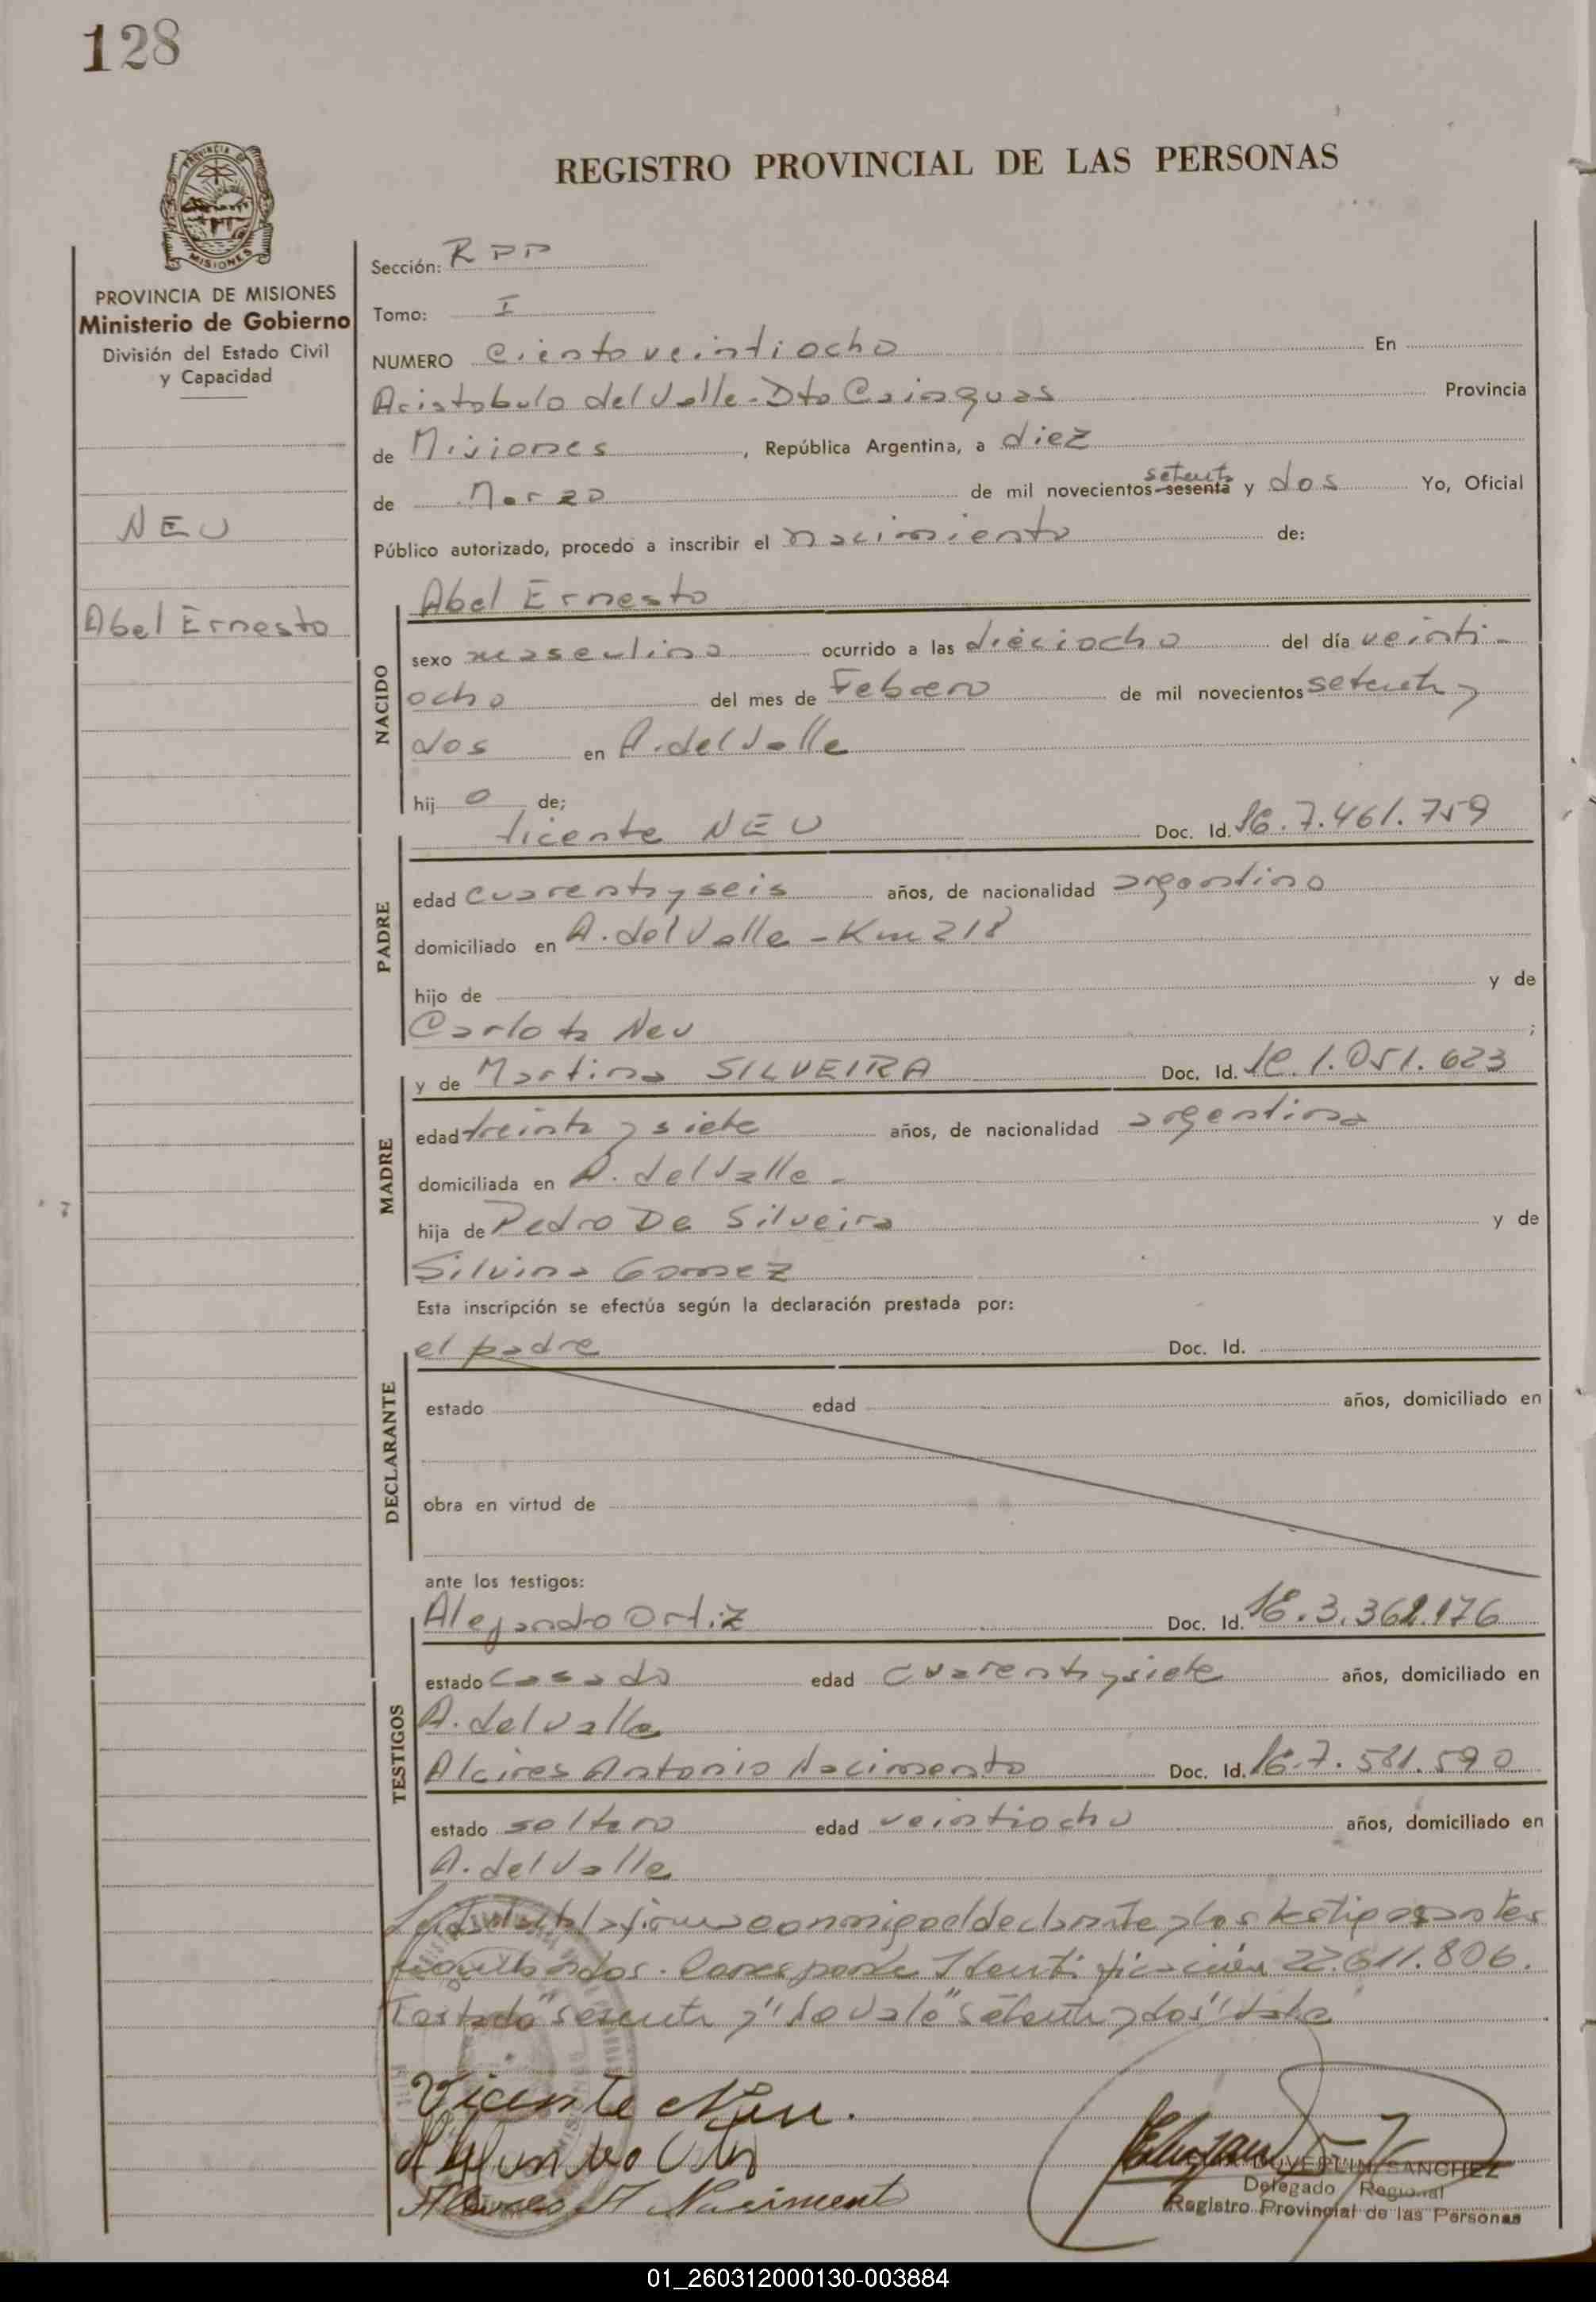 128
PROVINCIA DE MISIONES
REGISTRO PROVINCIAL DE LAS PERSONAS
PROVINCIA DE MISIONES
Ministerio de Gobierno
División del Estado Civil
y Capacidad
NEU
Abel Ernesto
Sección: RPP
Tomo: I
NUMERO Ciento veintiocho En
Aristobulo del Valle - Dto Cainguas Provincia
de Misiones, República Argentina, a diez
setenta
de Marzo de mil novecientos sesenta y dos Yo, Oficial
Público autorizado, procedo a inscribir el nacimiento de:
Abel Ernesto
NACIDO
sexo masculino ocurrido a las dieciocho del día veinti-
ocho del mes de Febrero de mil novecientos setenta y
dos en A. del Valle
hij o de;
Vicente NEU Doc. Id. 7.461.759
PADRE
edad cuarenta y seis años, de nacionalidad argentino
domiciliado en A. del Valle - Km 218
hijo de y de
Carlota Neu ;
y de Martina SILVEIRA Doc. Id. 1.051.623
MADRE
edad treinta y siete años, de nacionalidad argentina
domiciliada en A. del Valle -
hija de Pedro De Silveira y de
Silvina Gomez
Esta inscripción se efectúa según la declaración prestada por:
el padre Doc. Id.
DECLARANTE
estado edad años, domiciliado en
obra en virtud de
ante los testigos:
Alejandro Ortiz Doc. Id. 3.362.176
TESTIGOS
estado casado edad cuarenta y siete años, domiciliado en
A. del Valle
Alcires Antonio Nacimento Doc. Id. 7.581.590
estado soltero edad veintiocho años, domiciliado en
A. del Valle
Leida el acta la firma conmigo el declarante y los testigos antes
. Corresponde Identificación 22.611.806.
Testado "sesenta y" no vale "setenta y dos" vale
Vicente Neu.
A Nacimento
DUVERLIN SANCHEZ
Delegado Regional
Registro Provincial de las Personas
01_260312000130-003884